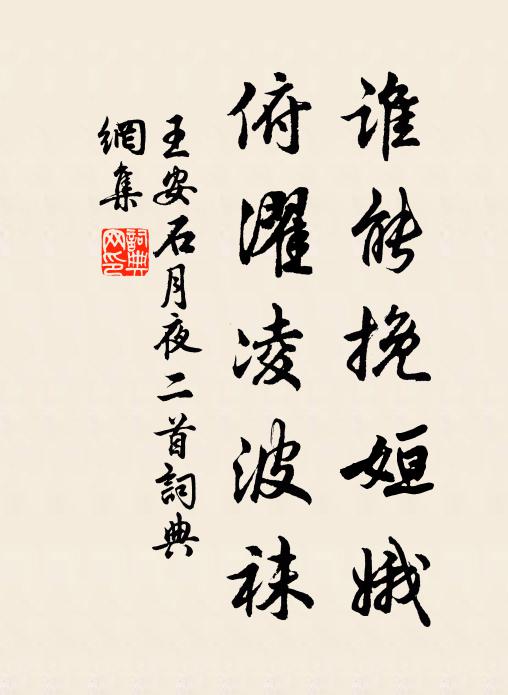 谁能挽姮娥
俯濯凌波袜
王安石月夜二首詞典
網集
詞典网印